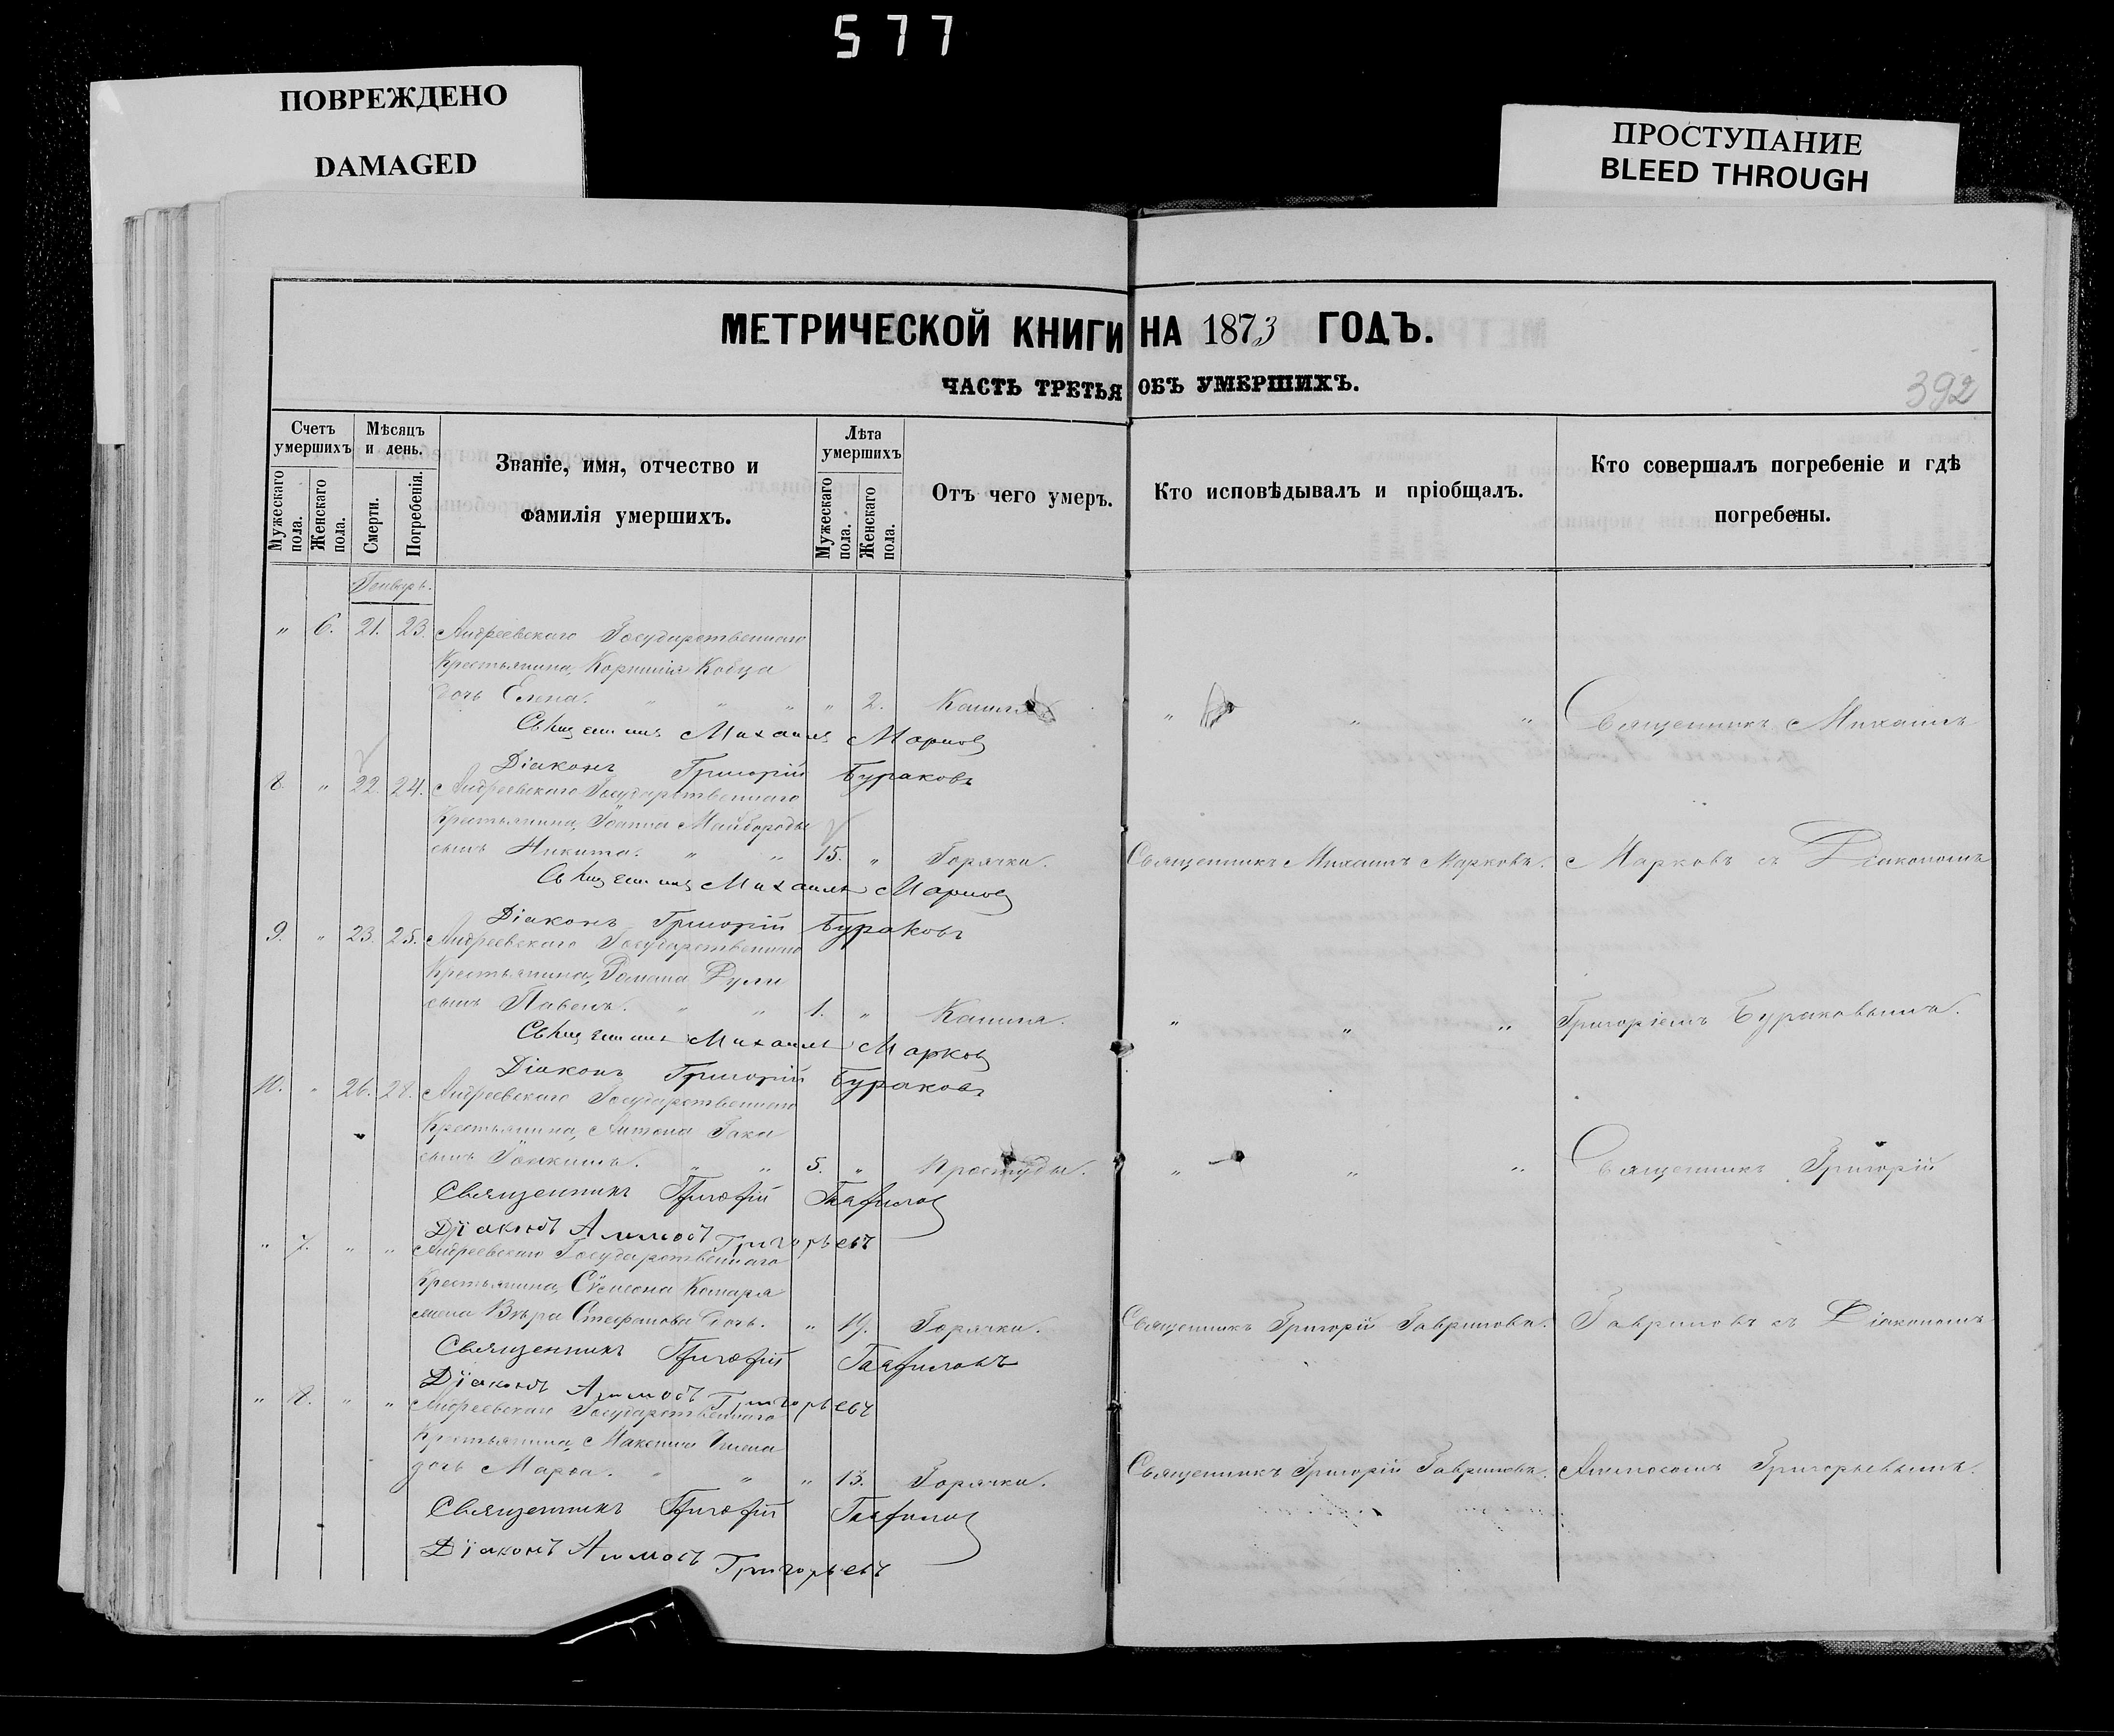 577
ПОВРЕЖДЕНО
DAMAGED
ПРОСТУПАНИЕ
BLEED THROUGH
МЕТРИЧЕСКОЙ КНИГИ НА 1873 ГОДЪ.
ЧАСТЬ ТРЕТЬЯ ОБЪ УМЕРШИХЪ.
392
Счетъ умершихъ
Мужескаго пола.
Женскаго пола.
Мѣсяцъ и день.
Смерти.
Погребенія.
Званіе, имя, отчество и
фамилія умершихъ.
Лѣта умершихъ
Мужескаго пола.
Женскаго пола.
Отъ чего умеръ.
Кто исповѣдывалъ и пріобщалъ.
Кто совершалъ погребеніе и гдѣ
погребены.
Генварь.
" 6. 21. 23. Андреевскаго Государственнаго
Крестьянина, Корнилія Кобца
дочь Елена. " " " " 2. Кашля " " " Священникъ Михаилъ
Священникъ Михаилъ Марков
Діаконъ Григорій Бураковъ
8. " 22. 24. Андреевскаго Государственнаго
Крестьянина, Іоанна Майбороды
сынъ Никита. " " 15. " Горячки. Священникъ Михаилъ Марковъ. Марковъ съ Діакономъ
Священникъ Михаилъ Марков
Діаконъ Григорій Бураковъ
9. " 23. 25. Андреевскаго Государственнаго
Крестьянина, Романа Дули
сынъ Павелъ. " " 1. " Кашля. " " " Григоріемъ Бураковымъ.
Священникъ Михаилъ Марков
Діаконъ Григорій Бураковъ
10. " 26. 28. Андреевскаго Государственнаго
Крестьянина, Антона Гака
сынъ Іоакимъ. " " 5. " Простуды. " " " Священникъ Григорій
Священникъ Григорій Гаврилов
Діаконъ Аммосъ Григорьевъ
" 7. " " Андреевскаго Государственнаго
Крестьянина, Сѵмеона Комаря
жена Вѣра Стефанова дочь. " 19. Горячки. Священникъ Григорій Гавриловъ. Гавриловъ съ Діакономъ
Священникъ Григорій Гавриловъ
Діаконъ Аммосъ Григорьевъ
" 8. " " Андреевскаго Государственнаго
Крестьянина, Максима
дочь Марѳа. " " " 13. Горячки. Священникъ Григорій Гавриловъ. Аммосомъ Григорьевымъ.
Священникъ Григорій Гаврилов
Діаконъ Аммосъ Григорьевъ